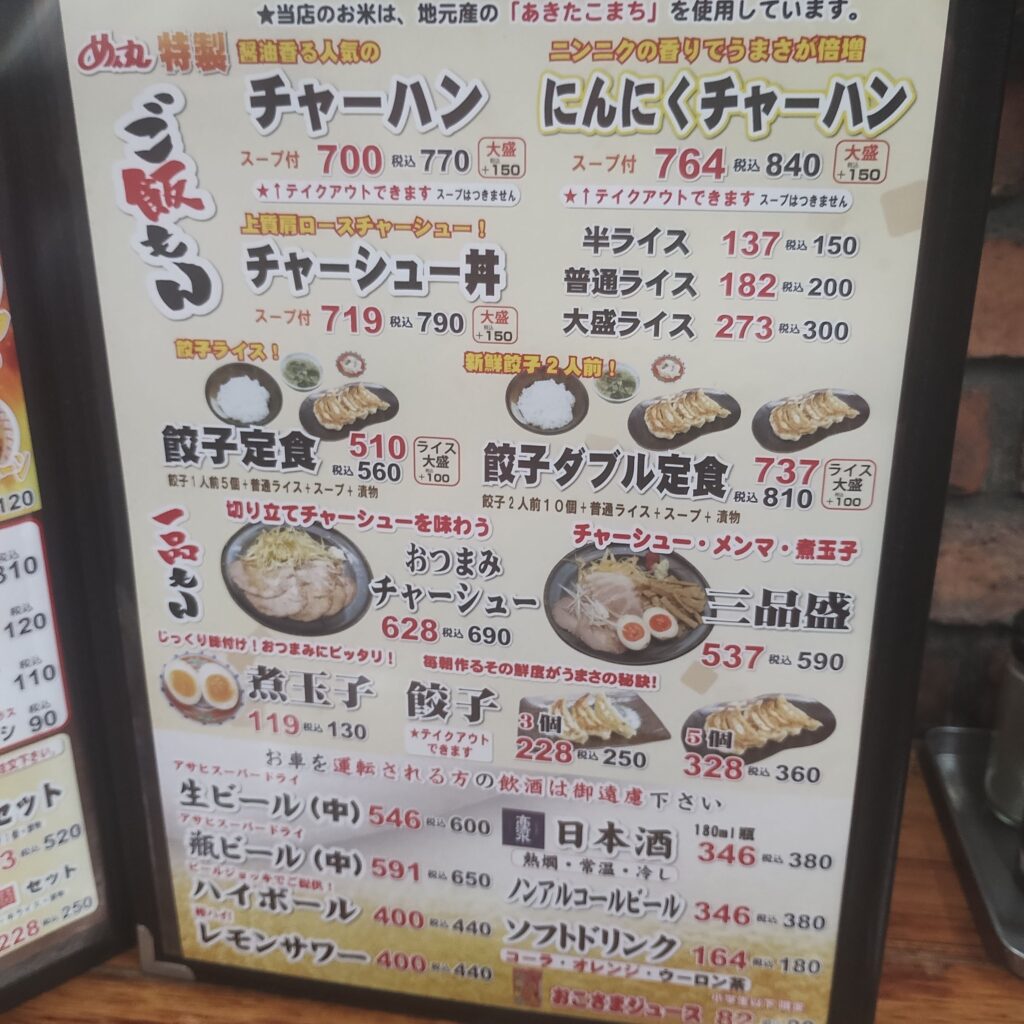 ★当店のお米は、地元産の「あきたこまち」を使用しています。
めん丸 特製
ご飯もの
醤油香る人気の
チャーハン
スープ付 700 税込770 大盛 税込+150
★↑テイクアウトできます スープはつきません
ニンニクの香りでうまさが倍増
にんにくチャーハン
スープ付 764 税込840 大盛 税込+150
★↑テイクアウトできます スープはつきません
上質肩ロースチャーシュー!
チャーシュー丼
スープ付 719 税込790 大盛 税込+150
半ライス 137 税込150
普通ライス 182 税込200
大盛ライス 273 税込300
餃子ライス!
餃子定食 510 税込560 ライス大盛 +100
餃子1人前5個+普通ライス+スープ+漬物
新鮮餃子2人前!
餃子ダブル定食 737 税込810 ライス大盛 +100
餃子2人前10個+普通ライス+スープ+漬物
一品もの
切り立てチャーシューを味わう
おつまみ
チャーシュー
628 税込690
チャーシュー・メンマ・煮玉子
三品盛
537 税込590
じっくり味付け!おつまみにピッタリ!
煮玉子
119 税込130
毎朝作るその鮮度がうまさの秘訣!
餃子
★テイクアウト
できます
3個
228 税込250
5個
328 税込360
お車を運転される方の飲酒は御遠慮下さい
アサヒスーパードライ
生ビール(中) 546 税込600
アサヒスーパードライ
瓶ビール(中) 591 税込650
ビールジョッキでご提供!
ハイボール 400 税込440
レモンサワー 400 税込440
高清水
日本酒 180ml瓶
346 税込380
熱燗・常温・冷し
ノンアルコールビール 346 税込380
ソフトドリンク 164 税込180
コーラ・オレンジ・ウーロン茶
おこさまジュース 82
120
税込
810
税込
120
税込
110
税込
90
セット
税込520
セット
228 税込250